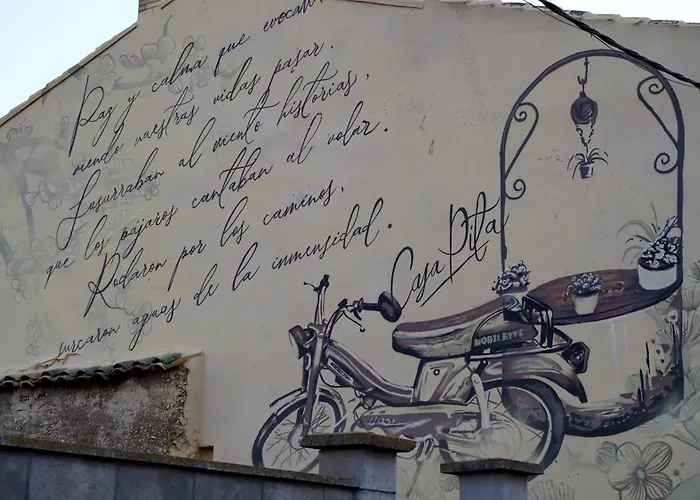 Paz y calma que evocan
viendo nuestras vidas pasar.
Susurraban al viento historias,
que los pájaros cantaban al volar.
Rodaron por los caminos,
surcaron aguas de la inmensidad.
Casa Pita
MOBILETTE